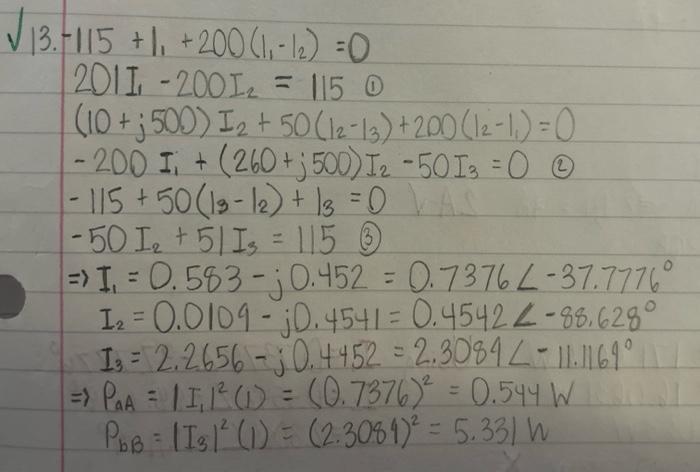 √13. -115 + I₁ + 200(I₁-I₂) = 0
201I₁ - 200I₂ = 115 ①
(10+j500)I₂ + 50(I₂-I₃) + 200(I₂-I₁) = 0
-200I₁ + (260+j500)I₂ - 50I₃ = 0 ②
-115 + 50(I₃-I₂) + I₃ = 0
-50I₂ + 51I₃ = 115 ③
⇒ I₁ = 0.583 - j0.452 = 0.7376∠-37.7776°
I₂ = 0.0109 - j0.4541 = 0.4542∠-88.628°
I₃ = 2.2656 - j0.4452 = 2.3089∠-11.1169°
⇒ PaA = |I₁|²(1) = (0.7376)² = 0.544 W
PbB = |I₃|²(1) = (2.3089)² = 5.331 W